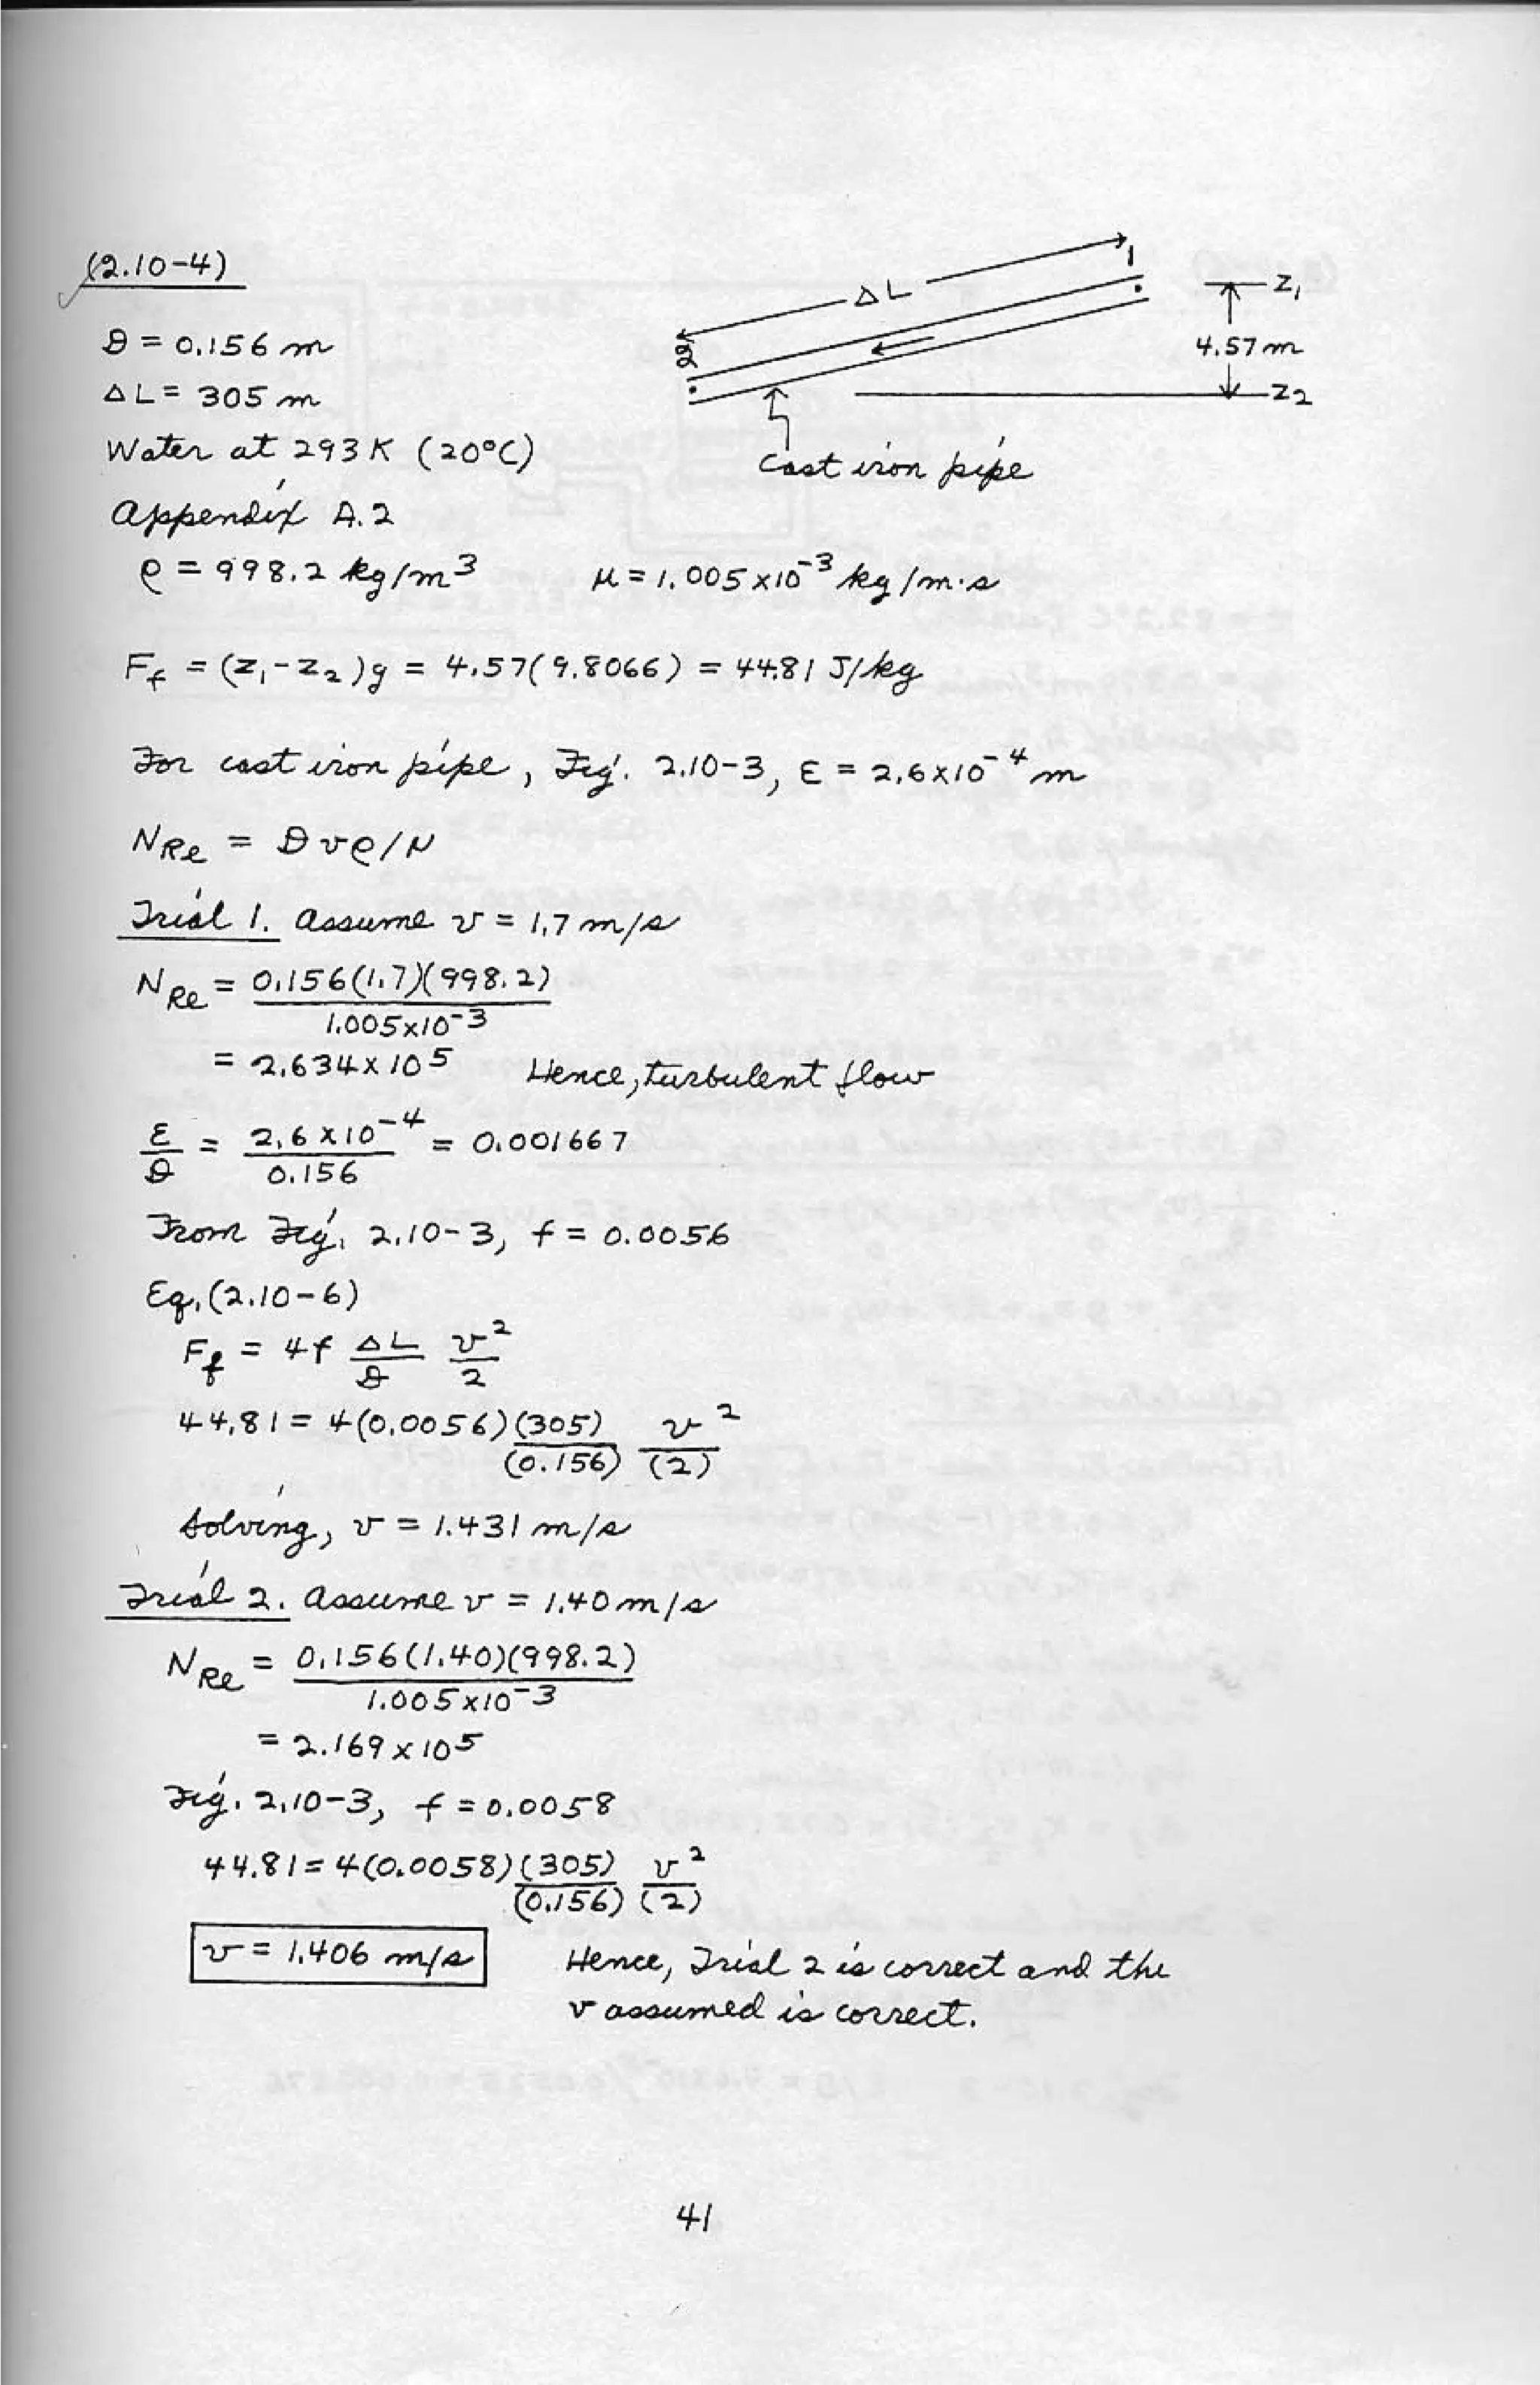 (2.10-4)
D = 0.156 m
ΔL = 305 m
Water at 293 K (20°C)
Appendix A.2
ρ = 998.2 kg/m³    μ = 1.005 x 10⁻³ kg/m·s
ΔL
1
2
z₁
4.57 m
z₂
cast iron pipe
F_f = (z₁ - z₂)g = 4.57(9.8066) = 44.81 J/kg
For cast iron pipe, Fig. 2.10-3, ε = 2.6 x 10⁻⁴ m
N_Re = D v ρ / μ
Trial 1. Assume v = 1.7 m/s
N_Re = 0.156(1.7)(998.2)
1.005 x 10⁻³
= 2.634 x 10⁵    Hence, turbulent flow
ε/D = 2.6 x 10⁻⁴ / 0.156 = 0.001667
From Fig. 2.10-3, f = 0.0056
Eq. (2.10-6)
F_f = 4f ΔL/D v²/2
44.81 = 4(0.0056) (305)/(0.156) v²/(2)
Solving, v = 1.431 m/s
Trial 2. Assume v = 1.40 m/s
N_Re = 0.156(1.40)(998.2)
1.005 x 10⁻³
= 2.169 x 10⁵
Fig. 2.10-3, f = 0.0058
44.81 = 4(0.0058) (305)/(0.156) v²/(2)
v = 1.406 m/s    Hence, Trial 2 is correct and the
v assumed is correct.
41